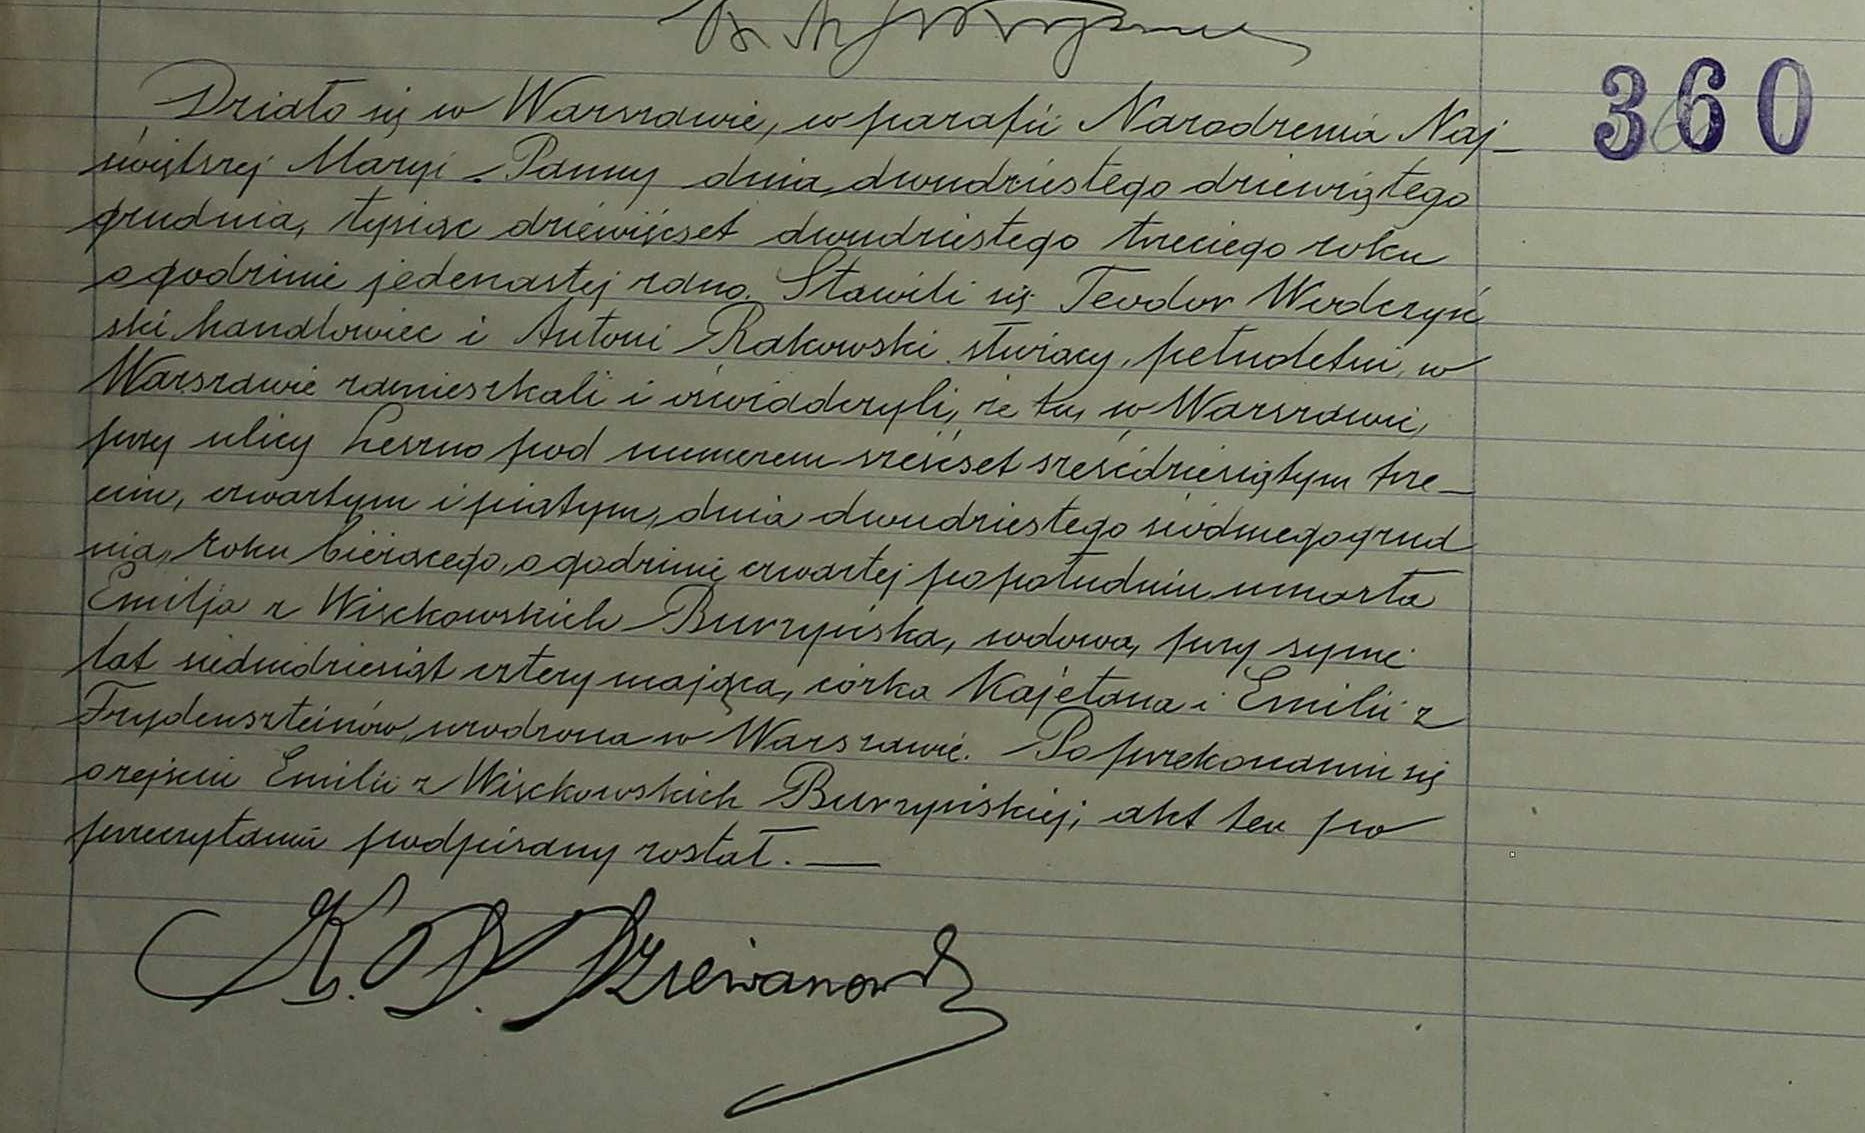 360
Działo się w Warszawie, w parafii Narodzenia Naj-
świętszej Maryi Panny dnia dwudziestego dziewiątego
grudnia, tysiąc dziewięćset dwudziestego trzeciego roku
o godzinie jedenastej rano. Stawili się Teodor Wodczyń
ski handlowiec i Antoni Rakowski służący, pełnoletni, w
Warszawie zamieszkali i oświadczyli, że tu, w Warszawie,
przy ulicy Leszno pod numerem sześćset sześćdziesiątym trze-
cim, czwartym i piątym, dnia dwudziestego siódmego grud
nia, roku bieżącego, o godzinie czwartej po południu umarła
Emilja z Więckowskich Burzyńska, wdowa, przy synie
lat siedmdziesiąt cztery mająca, córka Kajetana i Emilii z
Frydenszteinów, urodzona w Warszawie. Po przekonaniu się
o zejściu Emilii z Więckowskich Burzyńskiej, akt ten po
przeczytaniu podpisany został. —